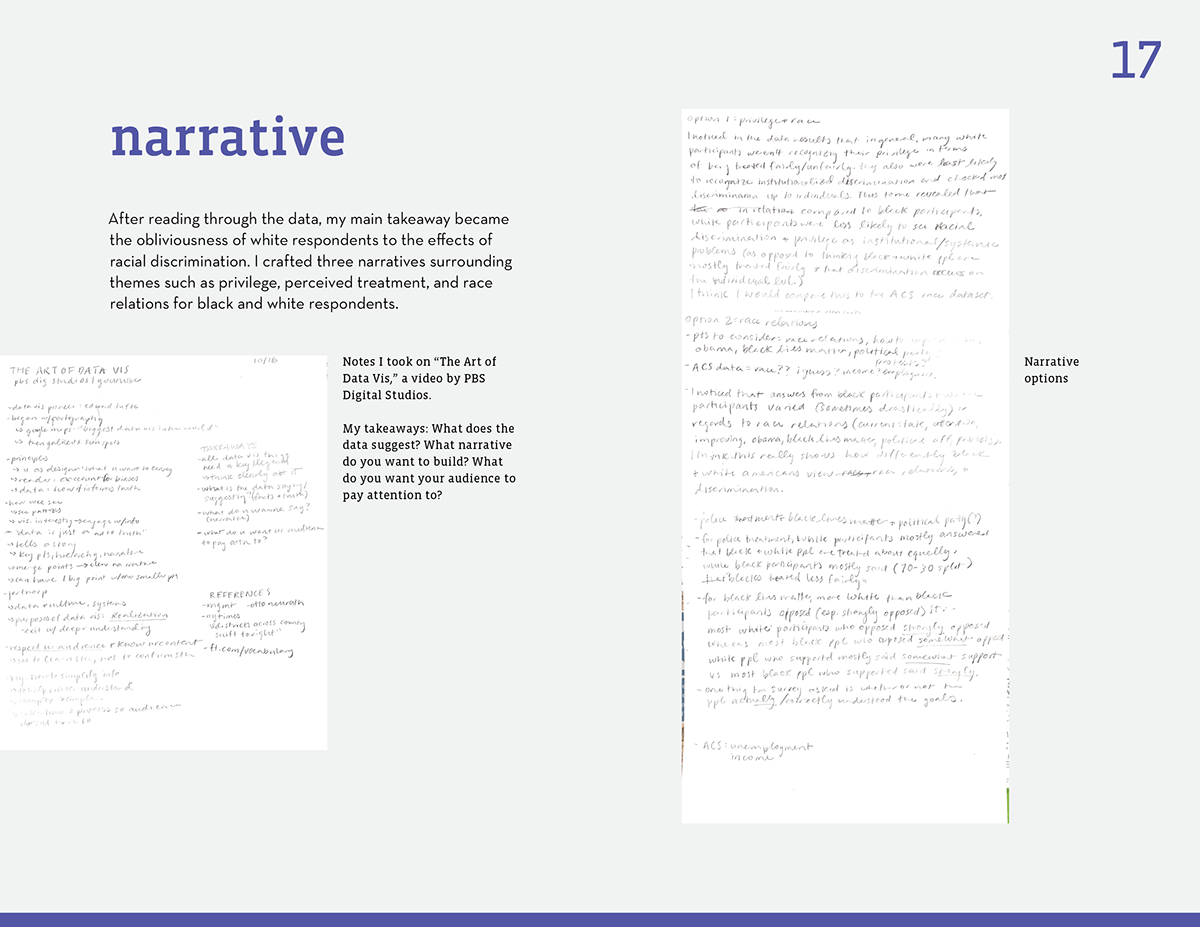 17
narrative
After reading through the data, my main takeaway became
the obliviousness of white respondents to the effects of
racial discrimination. I crafted three narratives surrounding
themes such as privilege, perceived treatment, and race
relations for black and white respondents.
10/18
THE ART OF DATA VIS
pbs dig studios | youtube
-data vis pioneer: edward tufte
-began w/ cartography
↳ google maps = "biggest data vis in the world"
-principles
-how we see
↳ see patterns
- "data is just a          truth"
↳ tells a story
↳ key pts, hierarchy, narrative
↳ merge points → clear narrative
↳ can have 1 big point w/ some smaller pts
↳ data          systems
↳ purposes of data vis: Realization
exit w/ deeper understanding
-respect ur audience + know ur content
TAKEAWAYS
-all data vis things
need a key/legend
↳ think clearly abt it
-what is the data saying/
suggesting? (facts + truth)
-what do u wanna say?
(narrative)
-what do u want ur audience
to pay attn to?
REFERENCES
-mgmt  -otto neurath
-nytimes
↳ "districts across country
shift to right"
-ft.com/vocabulary
Notes I took on “The Art of
Data Vis,” a video by PBS
Digital Studios.
My takeaways: What does the
data suggest? What narrative
do you want to build? What
do you want your audience to
pay attention to?
Option 1: privilege + race
I noticed in the data results that in general, many white
participants weren't recognizing their privilege in terms
of being treated fairly/unfairly. they also were least likely
to recognize institutionalized discrimination and checked most
discrimination up to individuals. This to me revealed that
in relation compared to black participants,
white participants were less likely to see racial
discrimination + privilege as institutional/systemic
problems (as opposed to thinking black + white ppl are
mostly treated fairly + that discrimination occurs on
the individual lvl.)
I think I would compare this to the ACS race dataset.
Option 2: race relations
- pts to consider: race relations,
obama, black lives matter, political party,
protests?
- ACS data = race?? i guess? income? employment.
- I noticed that answers from black participants + white
participants varied (sometimes drastically) in
regards to race relations (current state, attention,
improving, obama, black lives matter, political aff, protests).
I think this really shows how differently black
+ white americans view race relations, +
discrimination.
- police treatment + black lives matter + political party(?)
- for police treatment, white participants mostly answered
that black + white ppl are treated about equally,
while black participants mostly said (70-30 split)
that blacks treated less fairly.
- for black lives matter, more white than black
participants opposed (esp. strongly opposed) it:-
most white participants who opposed strongly opposed
whereas most black ppl who opposed somewhat opposed
white ppl who supported mostly said somewhat support
vs most black ppl who supported said strongly.
- one thing the survey asked is whether or not the
ppl actually/correctly understood the goals.
- ACS: unemployment
income
Narrative
options